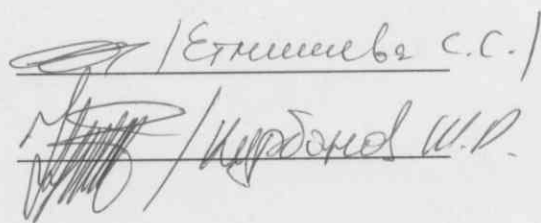 /Етмишева С.С./
/Курбанов Ш.Р.